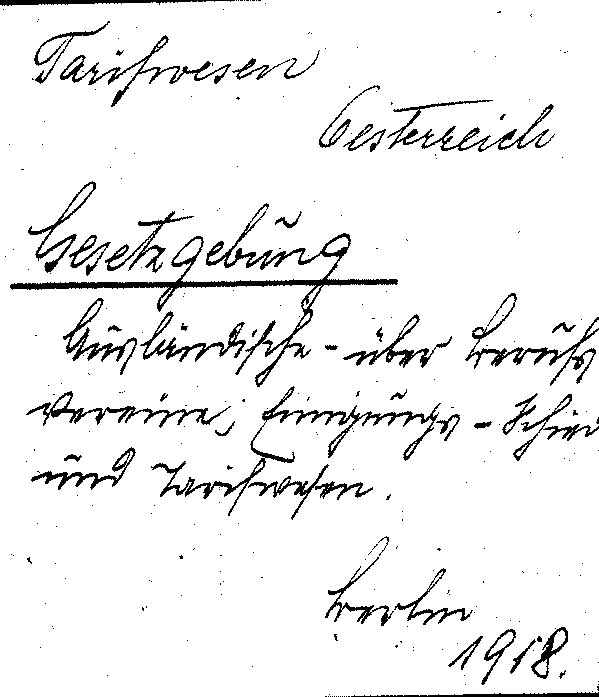 Tarifwesen
Oesterreich
Gesetzgebung
Ausländische - über Berufs
vereine, Einigungs - Schied
und Tarifwesen.
Berlin
1918.